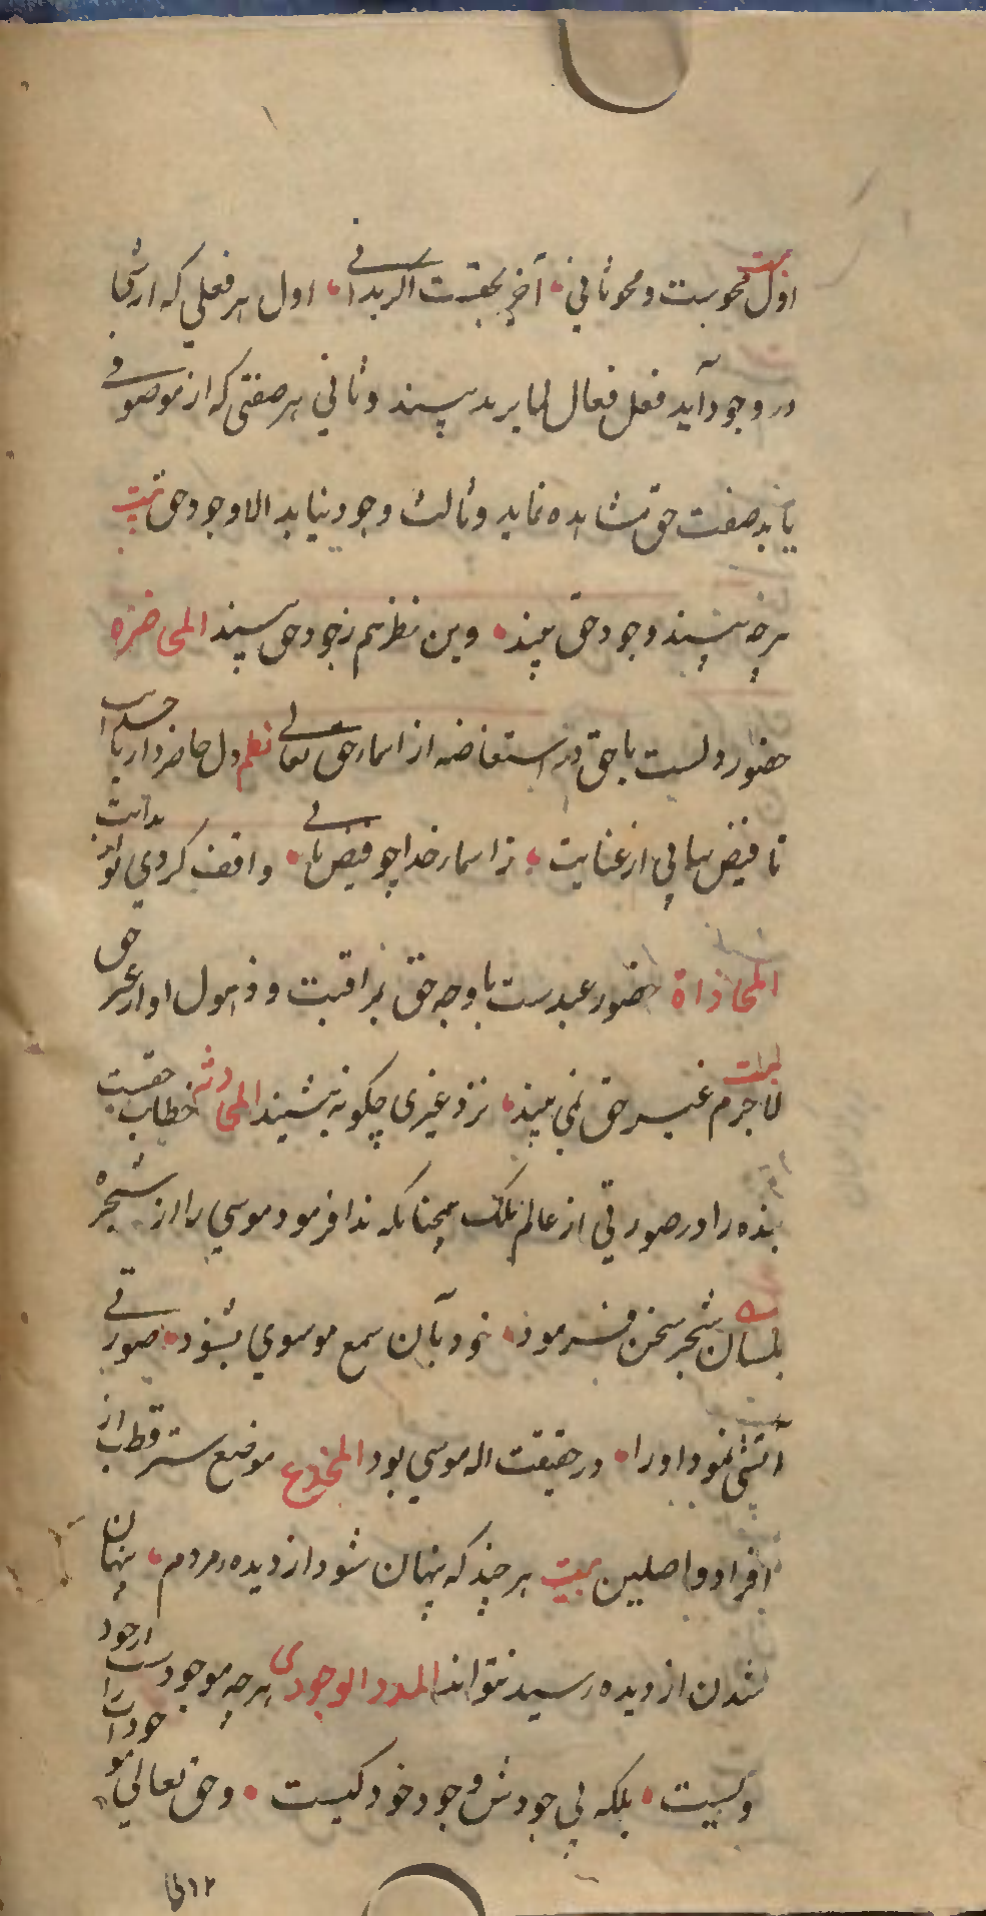 بیت
اول محویست و محو ثانی • آخر بحقست اگر بدانی • اول هر فعلی که از شیٔ
در وجود آید فعل فعال لما یرید بیند و ثانی هر صفتی که از موصوفی
یابد صفت حق مشاهده نماید و ثالث وجود نیابد الا وجود حق بیت
هرچه بیند وجود حق بیند • وین نظر هم زجود حق بیند المحاضره
حضور دلست با حق در استفاضه از اسماء حق تعالی نظم دل حاضر دار با خدایت
تا فیض بیابی از عنایت • ز اسماء خدا چو فیض یابی • واقف کردی تو از بدایت
المحاذاة حضور عبدست با وجه حق بمراقبت و ذهول او از غیر حق
بیت
لاجرم غیر حق نمی بیند • نزد غیری چکونه بنشیند المحادثه خطاب حقست
بنده را در صورتی از عالم ملک همچنانکه ندا فرمود موسی را از شجره
بلسان شجر سخن فرمود • خود بآن سمع موسوی بشنود • صورتی
آتشی نمود او را • در حقیقت اله موسی بود المخدع موضع ستر قطب از
افراد واصلین بیت هر چند که پنهان شود از دیده مردم • پنهان
شدن از دیده رسیدن نتواند المدد الوجودی هرچه موجودست از جود
ویست • بلکه بی جودش وجود خود کیست • و حق تعالی موجودات را